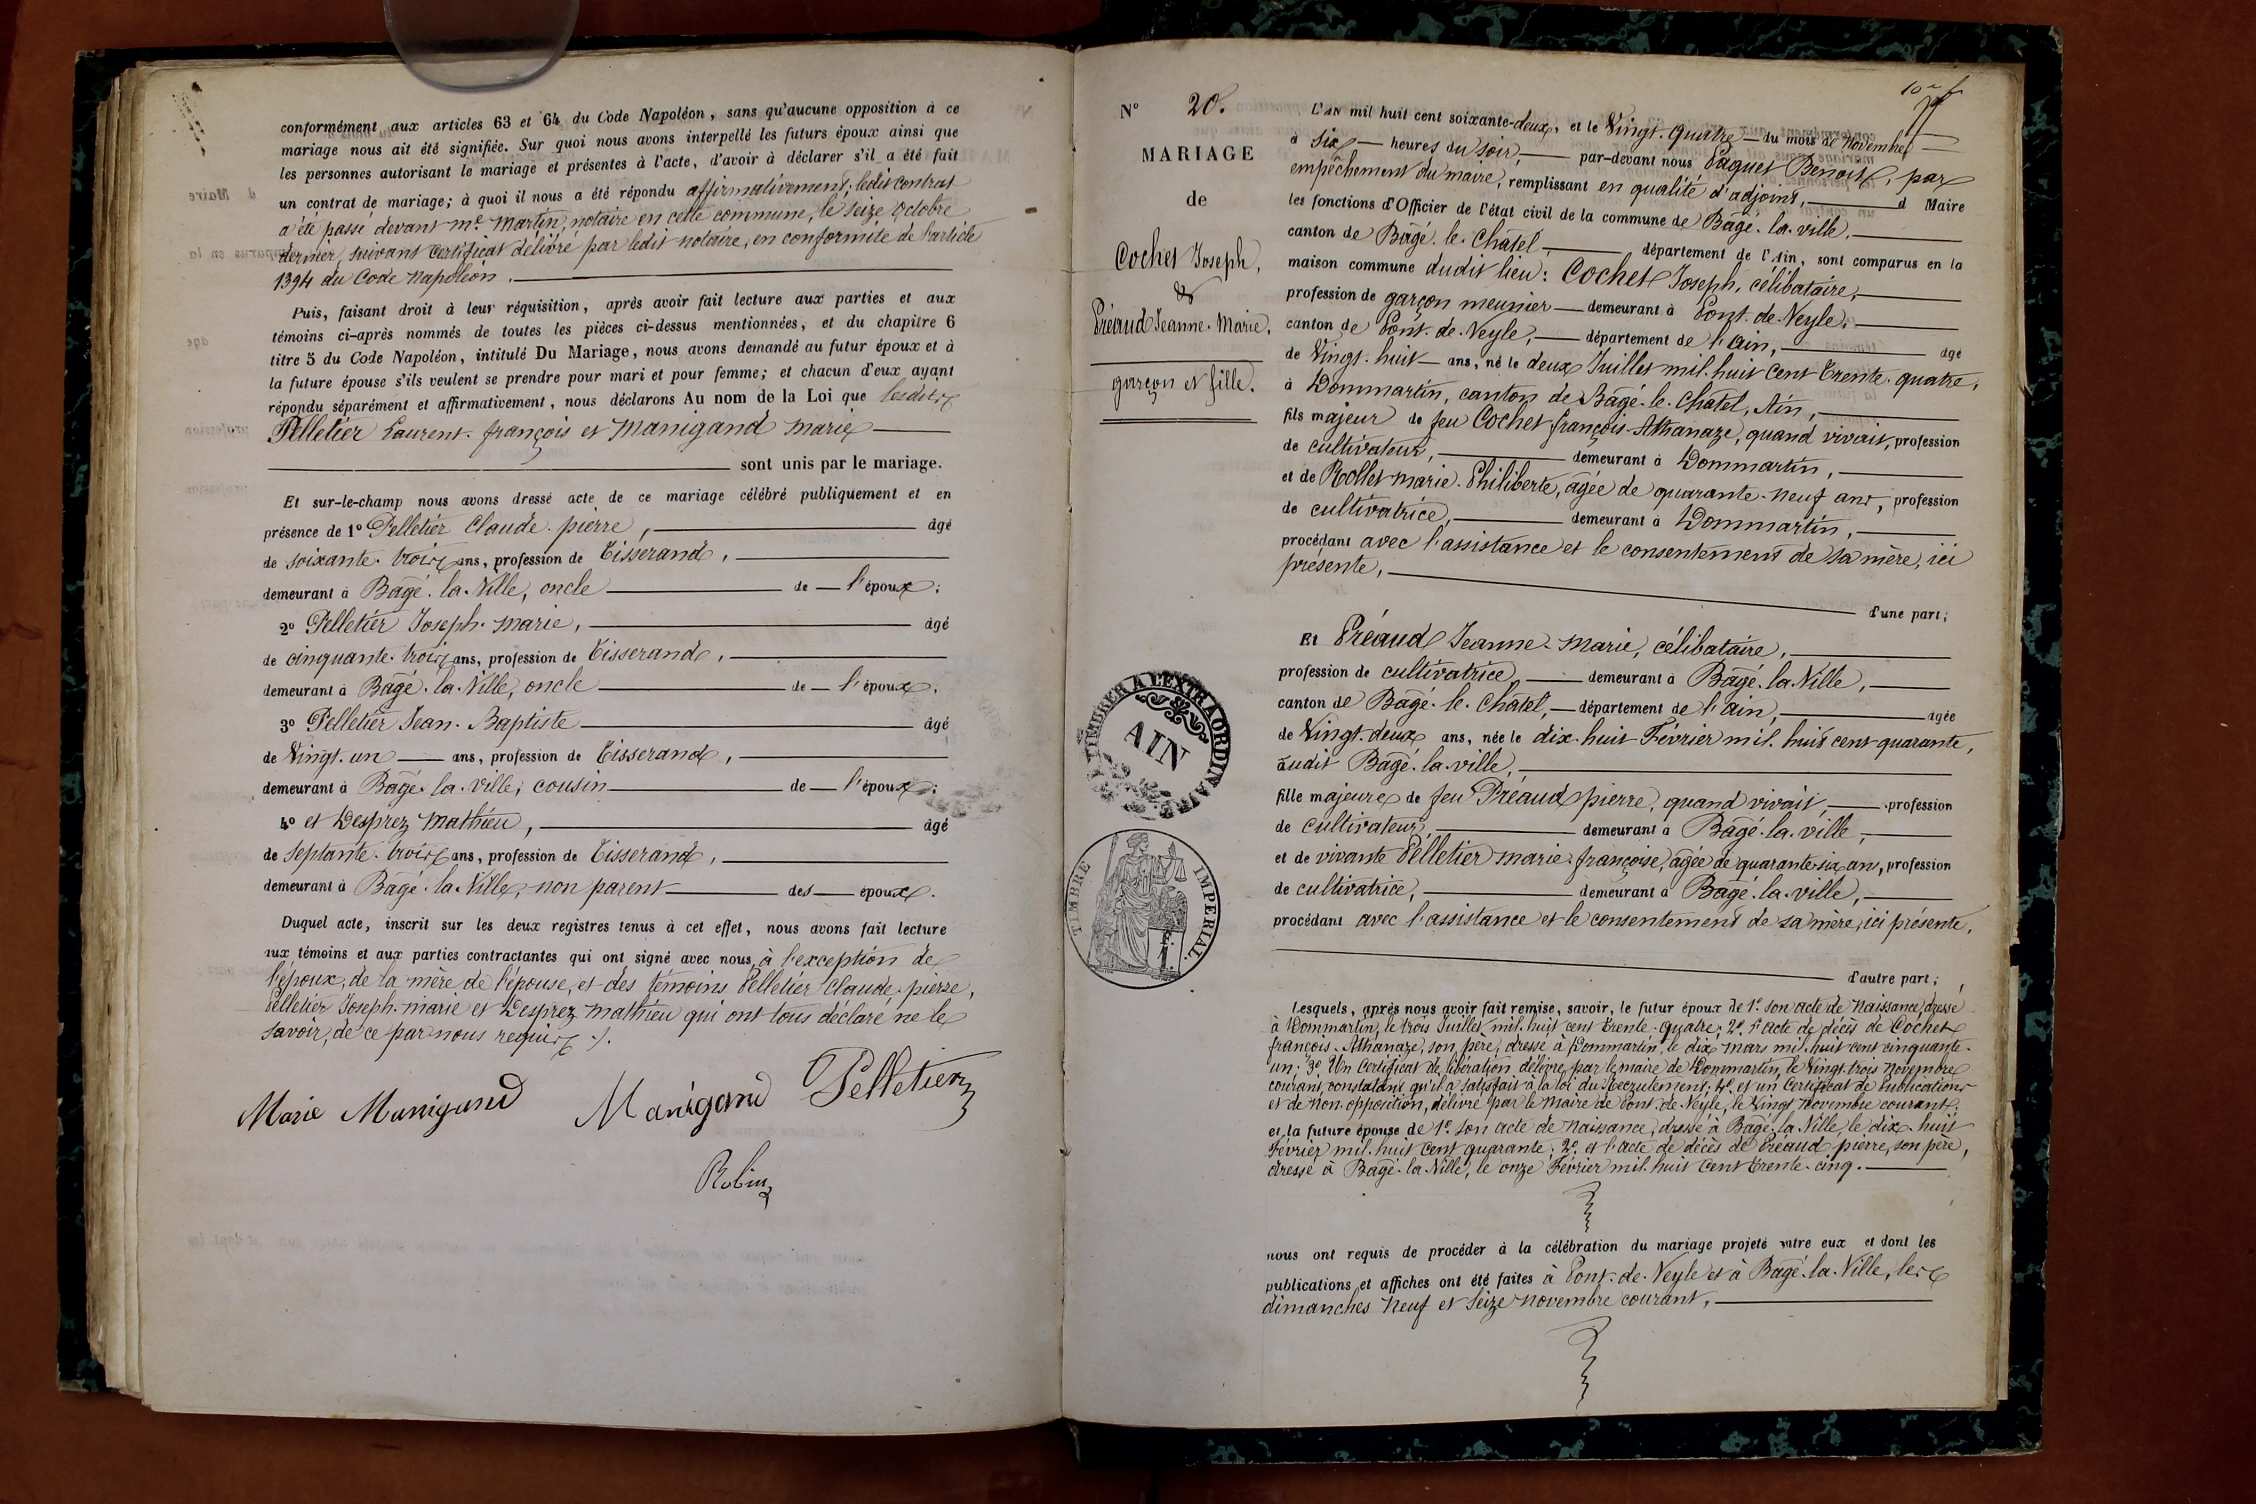 conformément aux articles 63 et 64 du Code Napoléon, sans qu'aucune opposition à ce
mariage nous ait été signifiée. Sur quoi nous avons interpellé les futurs époux ainsi que
les personnes autorisant le mariage et présentes à l'acte, d'avoir à déclarer s'il a été fait
un contrat de mariage; à quoi il nous a été répondu affirmativement; ledit contrat
a été passé devant me. Martin, notaire en cette commune, le seize Octobre
dernier, suivant certificat délivré par ledit notaire, en conformité de l'article
1394 du Code Napoléon.
Puis, faisant droit à leur réquisition, après avoir fait lecture aux parties et aux
témoins ci-après nommés de toutes les pièces ci-dessus mentionnées, et du chapitre 6
titre 5 du Code Napoléon, intitulé Du Mariage, nous avons demandé au futur époux et à
la future épouse s'ils veulent se prendre pour mari et pour femme; et chacun d'eux ayant
répondu séparément et affirmativement, nous déclarons Au nom de la Loi que lesdits
Pelletier Laurent. françois et Manigand Marie
sont unis par le mariage.
Et sur-le-champ nous avons dressé acte de ce mariage célébré publiquement et en
présence de 1º Pelletier Claude. pierre, âgé
de soixante. trois ans, profession de Tisserand,
demeurant à Bâgé. la. Ville, oncle de l'époux;
2º Pelletier Joseph. marie, âgé
de cinquante. trois ans, profession de Tisserand,
demeurant à Bâgé. la. Ville, oncle de l'époux.
3º Pelletier Jean. Baptiste âgé
de Vingt. un ans, profession de Tisserand,
demeurant à Bâgé. la. ville, cousin de l'époux;
4º et Desprez Mathieu, âgé
de septante. trois ans, profession de Tisserand,
demeurant à Bâgé. la. Ville, non parent des époux.
Duquel acte, inscrit sur les deux registres tenus à cet effet, nous avons fait lecture
aux témoins et aux parties contractantes qui ont signé avec nous, à l'exception de
l'époux, de la mère de l'épouse, et des témoins Pelletier Claude. pierre,
Pelletier Joseph. marie et Desprez Mathieu qui ont tous déclaré ne le
savoir, de ce par nous requis ./.
Marie Manigand Manigand Pelletier
Robin
Nº 20.
MARIAGE
de
Cochet Joseph,
&
Préaud Jeanne. Marie.
garçon et fille.
TIMBRER A L'EXTRAORDINAIRE
AIN
TIMBRE IMPERIAL.
L'AN mil huit cent soixante-deux, et le Vingt. quatre du mois de Novembre
à six heures du soir, par-devant nous Paquet Benoit, par
empêchement du maire, remplissant en qualité d'adjoint, d Maire
les fonctions d'Officier de l'état civil de la commune de Bâgé. la. ville.
canton de Bâgé. le. Châtel, département de l'Ain, sont comparus en la
maison commune dudit lieu: Cochet Joseph, célibataire,
profession de garçon meunier demeurant à Pont. de. Veyle,
canton de Pont. de. Veyle, département de l'ain, âgé
de Vingt. huit ans, né le deux Juillet mil. huit cent trente. quatre,
à Dommartin, canton de Bâgé. le. Châtel, Ain,
fils majeur de feu Cochet françois. Athanaze, quand vivait, profession
de cultivateur, demeurant à Dommartin,
et de Rollet marie. Philiberte, agée de quarante. neuf ans, profession
de cultivatrice, demeurant à Dommartin,
procédant avec l'assistance et le consentement de sa mère, ici
présente,
d'une part;
Et Préaud Jeanne. marie, célibataire,
profession de cultivatrice, demeurant à Bâgé. la. Ville,
canton de Bâgé. le. Châtel, département de l'ain, âgée
de Vingt. deux ans, née le dix. huit Février mil. huit cent quarante,
audit Bâgé. la. ville,
fille majeure de feu Préaud pierre, quand vivait, profession
de cultivateur, demeurant à Bâgé. la. ville,
et de vivante Pelletier marie. françoise, agée de quarante. six ans, profession
de cultivatrice, demeurant à Bâgé. la. ville,
procédant avec l'assistance et le consentement de sa mère, ici présente,
d'autre part;
Lesquels, après nous avoir fait remise, savoir, le futur époux de 1º. son acte de Naissance, dressé
à Dommartin, le trois Juillet mil. huit cent trente. quatre; 2º. l'acte de décès de Cochet
françois. Athanaze, son père, dressé à Dommartin, le dix mars mil. huit cent cinquante.
un; 3º. Un certificat de libération, délivré par le maire de Dommartin, le Vingt. trois Novembre
courant, constatant qu'il a satisfait à la loi du Recrutement; 4º. et un Certificat de Publications
et de non. opposition, délivré par le Maire de Pont. de. Veyle, le Vingt Novembre courant;
et la future épouse de 1º. son acte de Naissance, dressé à Bâgé. la. Ville, le dix. huit
Février mil. huit cent quarante; 2º. et l'acte de décès de Préaud pierre, son père,
dressé à Bâgé. la. Ville, le onze Février mil. huit cent trente. cinq.
nous ont requis de procéder à la célébration du mariage projeté entre eux et dont les
publications et affiches ont été faites à Pont. de. Veyle et à Bâgé. la. Ville, les
dimanches Neuf et Seize Novembre courant,